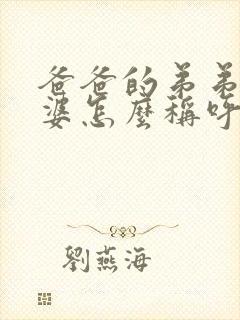 爸爸的弟弟
婆怎麼稱呼
劉燕海